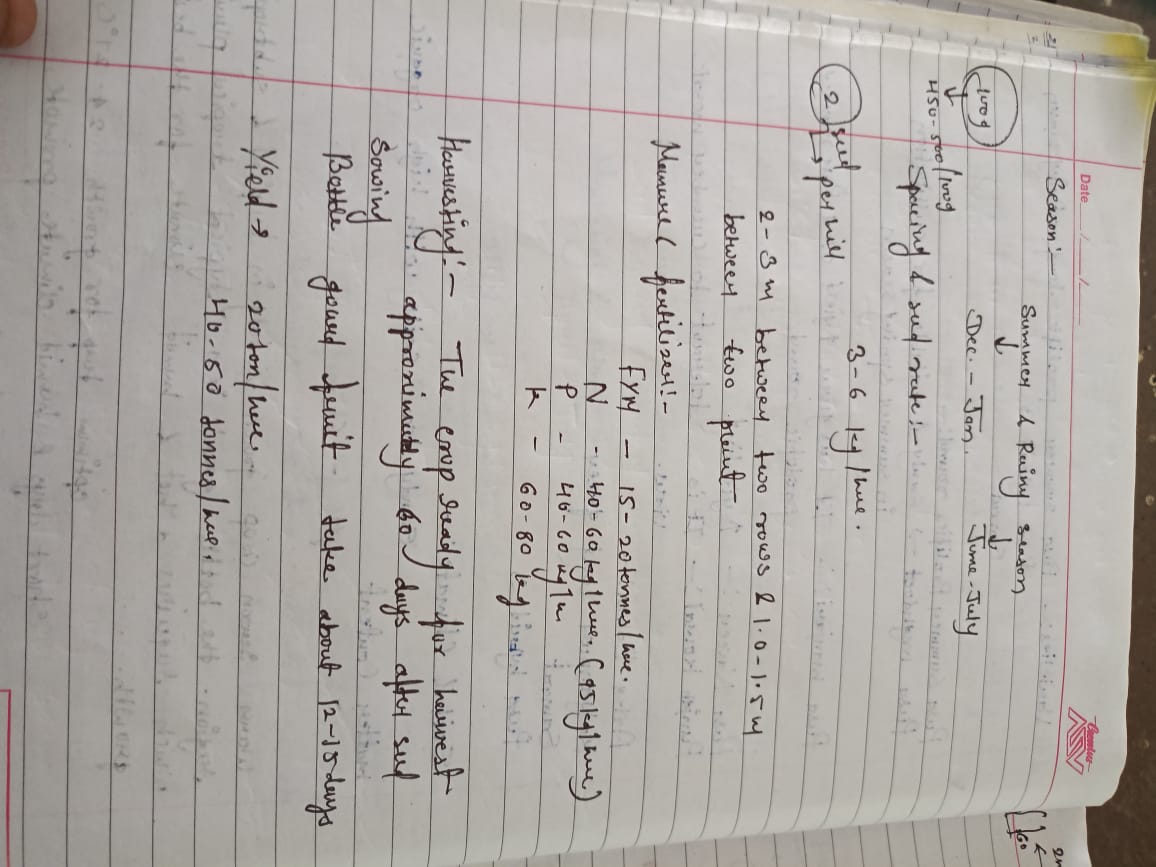 Date
Classmate
Season:-
Summer & Rainy season
↓ ↓
Dec. - Jan. June-July
100g
↓
450-500/100g
Spacing & seed rate:-
3-6 kg/hac.
2 seed
→ per hill
2-3 m between two rows & 1.0-1.5 m
between two plant
Manure & fertilizer:-
FYM - 15-20 tonnes/hac.
N - 40-60 kg/hac. (95 kg/hac)
P - 40-60 kg/h
K - 60-80 kg
Harvesting:- The crop ready for harvest
approximately 60 days after seed
Sowing
Bottle gourd fruit take about 12-15 days
Yield → 20 ton/hac.
40-50 tonnes/hac.